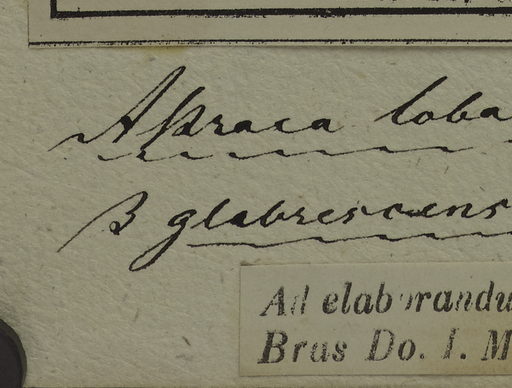 Aspraca loba
β glabrescens
Ad elaborandu
Bras Do. I. M